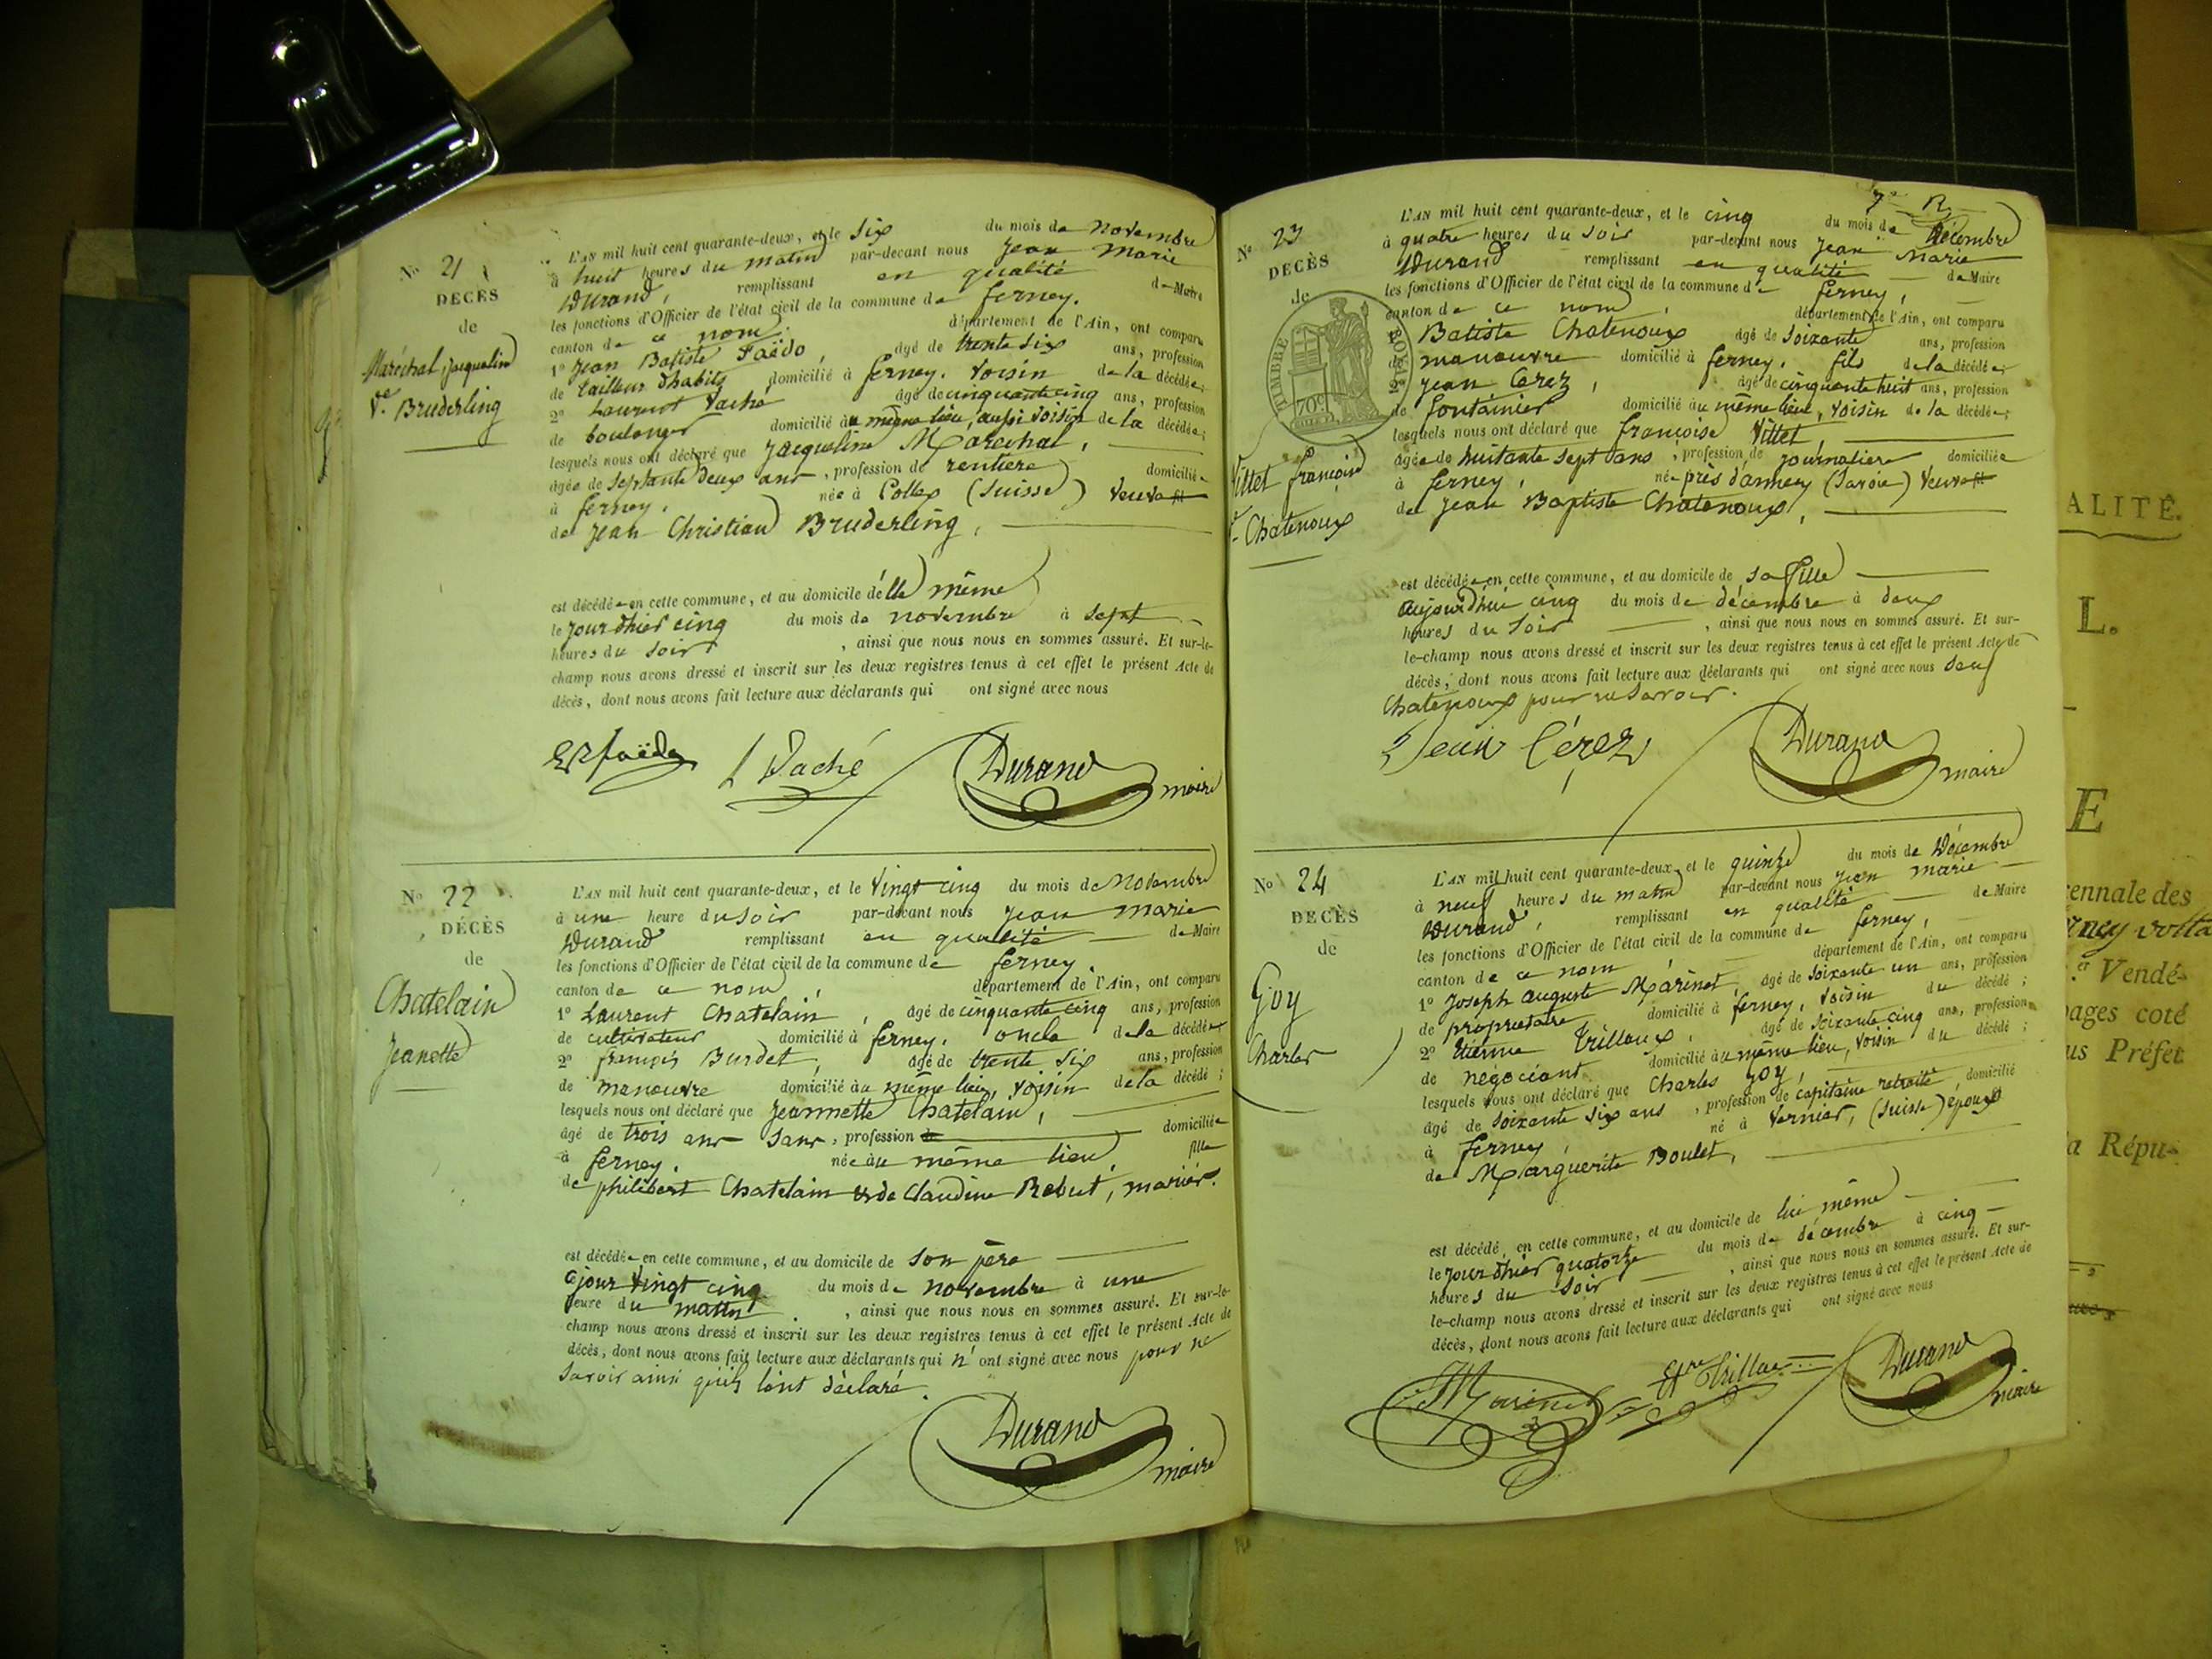 N° 21
DÉCÈS
de
Maréchal, Jacqueline
Ve Bruderling
L'AN mil huit cent quarante-deux, et le six du mois de novembre
à huit heures du matin par-devant nous Jean Marie
Durand, remplissant en qualité de Maire
les fonctions d'Officier de l'état civil de la commune de ferney.
canton de ce nom. département de l'Ain, ont comparu
1° Jean Batiste Faëdo, âgé de trente six ans, profession
de tailleur d'habits domicilié à ferney. voisin de la décédée;
2° Laurent Vaché âgé de cinquante cinq ans, profession
de boulanger domicilié au même lieu, aussi voisin de la décédée;
lesquels nous ont déclaré que Jacqueline Marechal,
âgée de septante deux ans, profession de rentiere domiciliée
à ferney. née à Collex (Suisse) veuve fil
de Jean Christian Bruderling,
est décédée en cette commune, et au domicile d'elle même
le jour d'hier cinq du mois de novembre à sept
heures du soir, ainsi que nous nous en sommes assuré. Et sur-le-
champ nous avons dressé et inscrit sur les deux registres tenus à cet effet le présent Acte de
décès, dont nous avons fait lecture aux déclarants qui ont signé avec nous
L Vaché Durand maire
N° 22
DÉCÈS
de
Chatelain
Jeanette
L'AN mil huit cent quarante-deux, et le vingt cinq du mois de Novembre
à une heure du soir par-devant nous Jean Marie
Durand remplissant en qualité de Maire
les fonctions d'Officier de l'état civil de la commune de ferney.
canton de ce nom, département de l'Ain, ont comparu
1° Laurent Chatelain, âgé de cinquante cinq ans, profession
de cultivateur domicilié à ferney. oncle de la décédée;
2° françois Burdet, âgé de trente six ans, profession
de manouvre domicilié au même lieu, voisin de la décédé;
lesquels nous ont déclaré que Jeannette Chatelain,
âgé de trois ans sans, profession de domiciliée
à ferney. née au même lieu, fille
de philibert Chatelain et de Claudine Rebut, mariés.
est décédée en cette commune, et au domicile de son père
ce jour vingt cinq du mois de novembre à une
heure du matin, ainsi que nous nous en sommes assuré. Et sur-le-
champ nous avons dressé et inscrit sur les deux registres tenus à cet effet le présent Acte de
décès, dont nous avons fait lecture aux déclarants qui n'ont signé avec nous pour ne
savoir ainsi qu'ils l'ont déclaré.
Durand maire
7
N° 23
DÉCÈS
de
TIMBRE ROYAL
70c
Villet françoise
Ve Chatenoux
L'AN mil huit cent quarante-deux, et le cinq du mois de Décembre
à quatre heures du soir par-devant nous Jean Marie
Durand remplissant en qualité de Maire
les fonctions d'Officier de l'état civil de la commune de ferney,
canton de ce nom, département de l'Ain, ont comparu
Batiste Chatenoux âgé de soixante ans, profession
de manouvre domicilié à ferney. fils de la décédée;
2° Jean Cerez, âgé de cinquante huit ans, profession
de fontainier domicilié au même lieu, voisin de la décédée;
lesquels nous ont déclaré que françoise Villet,
âgée de huitante sept ans, profession de journaliere domiciliée
à ferney, née près d'annecy (Savoie) veuve fil
de Jean Baptiste Chatenoux,
est décédée en cette commune, et au domicile de sa fille
aujourd'hui cinq du mois de décembre à deux
heures du soir, ainsi que nous nous en sommes assuré. Et sur-
le-champ nous avons dressé et inscrit sur les deux registres tenus à cet effet le présent Acte de
décès, dont nous avons fait lecture aux déclarants qui ont signé avec nous sauf
Chatenoux pour ne savoir.
Jean Cérez Durand maire
N° 24
DÉCÈS
de
Goy
Charles
L'AN mil huit cent quarante-deux, et le quinze du mois de Décembre
à neuf heures du matin par-devant nous Jean Marie
Durand, remplissant en qualité de Maire
les fonctions d'Officier de l'état civil de la commune de ferney,
canton de ce nom département de l'Ain, ont comparu
1° Joseph auguste Marinet, âgé de soixante un ans, profession
de propriétaire domicilié à ferney, voisin du décédé;
2° Etienne Trilloux, âgé de soixante cinq ans, profession
de négociant domicilié au même lieu, voisin du décédé;
lesquels nous ont déclaré que Charles Goy,
âgé de soixante six ans, profession de capitaine retraité, domicilié
à ferney, né à Vernier, (Suisse) époux
de Marguerite Boulet,
est décédé en cette commune, et au domicile de lui même
le jour d'hier quatorze du mois de décembre à cinq
heures du soir, ainsi que nous nous en sommes assuré. Et sur-
le-champ nous avons dressé et inscrit sur les deux registres tenus à cet effet le présent Acte de
décès, dont nous avons fait lecture aux déclarants qui ont signé avec nous
Marinet Durand maire
ALITÉ.
L.
E
ennale des
rney volta
Vendé-
pages coté
us Préfet
a Répu-